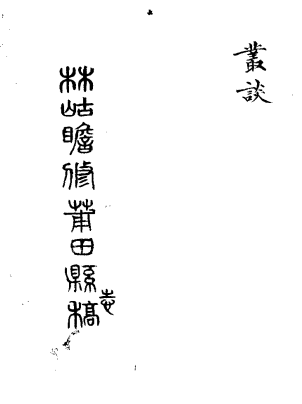 叢談
林岵瞻修莆田縣志稿